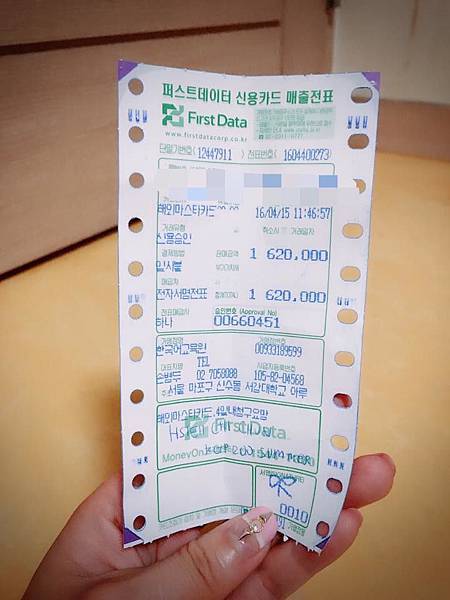 퍼스트데이터 신용카드 매출전표
First Data
www.firstdatacorp.co.kr
단말기번호( 12447911 ) 전표번호( 1604400273 )
해외마스타카드 16/04/15 11:46:57
거래유형 취소시 거래일자
신용승인
결제방법 판매금액 1 620,000
일시불 부가가치세
매입자
전자서명전표 합계(TOTAL) 1 620,000
전표매입사 승인번호 (Approval No)
하나 00660451
가맹점명 가맹점번호
한국어교육원 00933189599
대표자명 TEL 사업자등록번호
손병두 02-7058088 105-82-04568
서울 마포구 신수동 서강대학교 아루
해외마스타카드.4일내청구요망
First Data
HSIEH
KGP200 SUMMER
0010